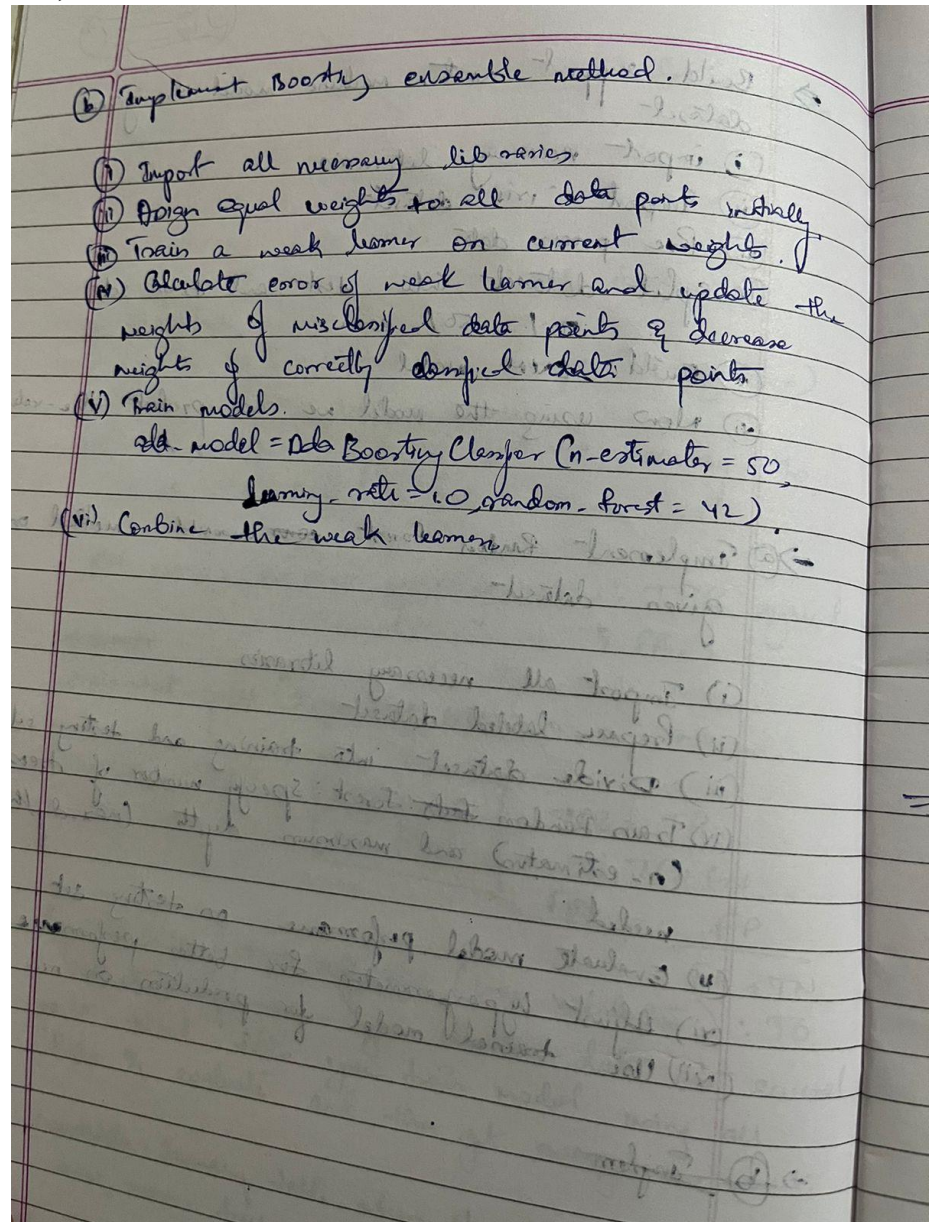 (b) Implement Boosting ensemble method.
(i) Import all necessary libraries
(ii) Assign equal weights to all data points initially
(iii) Train a weak learner on current weights.
(iv) Calculate error of weak learner and update the
weights of misclassified data points & decrease
weights of correctly classified data points
(v) Train models.
model = Ada Boosting Classifier (n-estimator = 50,
learning-rate = 1.0, random-forest = 42)
(vi) Combine the weak learners